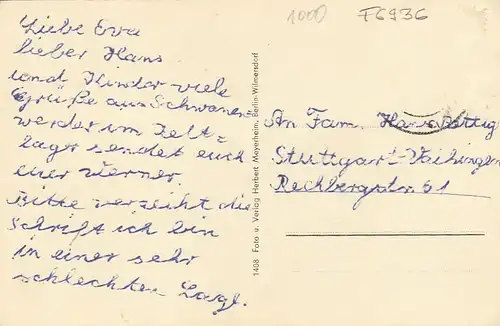 1000 F6936
Liebe Eva
lieber Hans
und Kinder viele
Grüße aus Schwanen-
werder im Zelt-
lager sendet euch
euer Werner.
Bitte verzeiht die
Schrift ich bin
in einer sehr
schlechten Lage.
1408 Foto u. Verlag Herbert Meyerheim, Berlin-Wilmersdorf
An Fam. Hans
Stuttgart-Vaihingen
Rechbergstr. 61